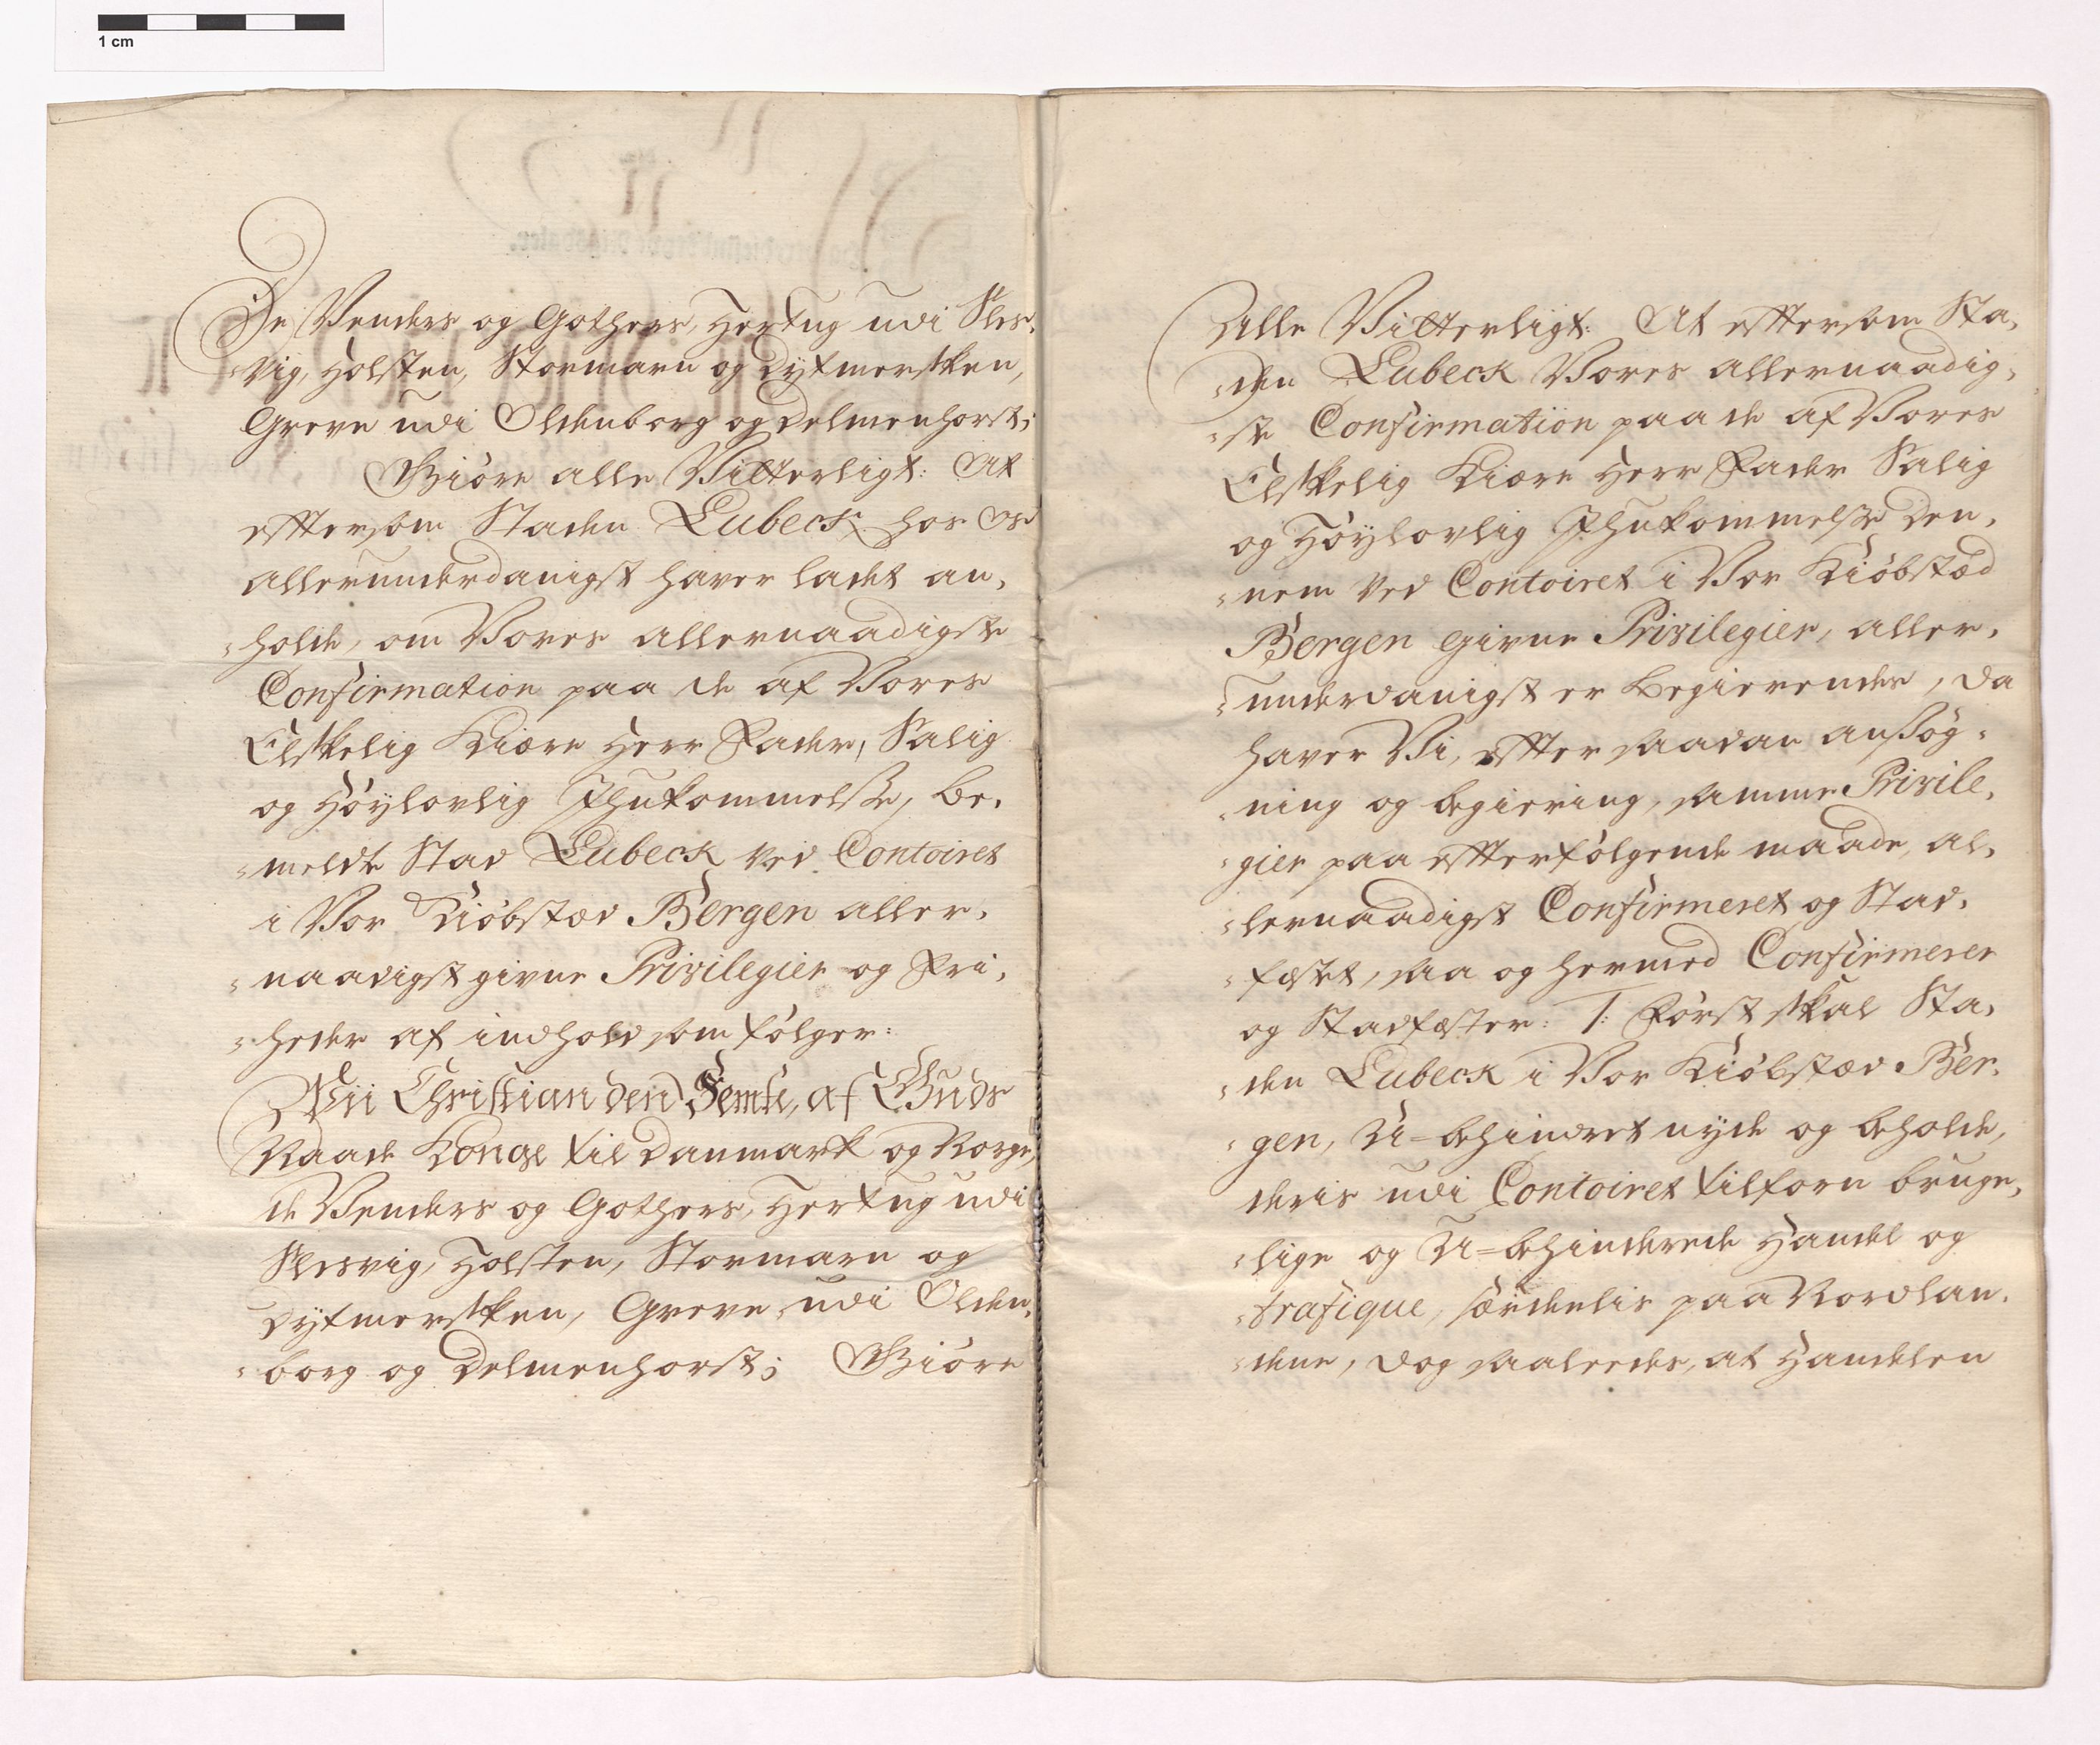 1 cm
De Venders og Gothers, Hertug udi Sles-
-vig, Holsten, Stormarn og Dytmersken,
Greve udi Oldenborg og Delmenhorst;
Giöre alle Vitterligt: At
effterson Staden Lubeck hos Os
allerunderdanigst haver ladet an-
-holde, om Vores allernaadigste
Confirmation paa de af Vores
Elskelig Kiære Herr Fader, Salig
og Höylovlig Ihukommelße, be-
-meldte Stad Lubeck ved Contoiret
i Vor Kiöbstæd Bergen aller-
-naadigst givne Privilegier og Fri-
-heder af indhold som fölger:
Wii Christian den Femte, af Guds
Naade Konge til Danmark og Norge,
de Venders og Gothers, Hertug udi
Slesvig, Holsten, Stormarn og
Dytmersken, Greve udi Olden-
-borg og Delmenhorst; Giöre
Alle Vitterligt: At efftersom Sta-
-den Lubeck Vores allernaadig-
-ste Confirmation paa de af Vores
Elskelig Kiære Herr Fader Salig
og Höylovlig Ihukommelße den-
-nem ved Contoiret i Vor Kiöbstæd
Bergen givne Privilegier, aller-
-underdanigst er begierendes, da
haver Vi, effter saadan anßög-
-ning og begiering, samme Privile-
-gier paa effterfölgende maade, al-
-lernaadigst Confirmeret og Stad-
-fæstet, saa og hermed Confirmerer
og Stadfæster: 1: Först skal Sta-
-den Lubeck i Vor Kiöbstæd Ber-
-gen, U=behindret nyde og beholde,
deris udi Contoiret tilforn bruge-
-lige og U=behinderede Handel og
-trafique, særdelis paa Nordlan-
-dene, dog saaleedes, at Handelen